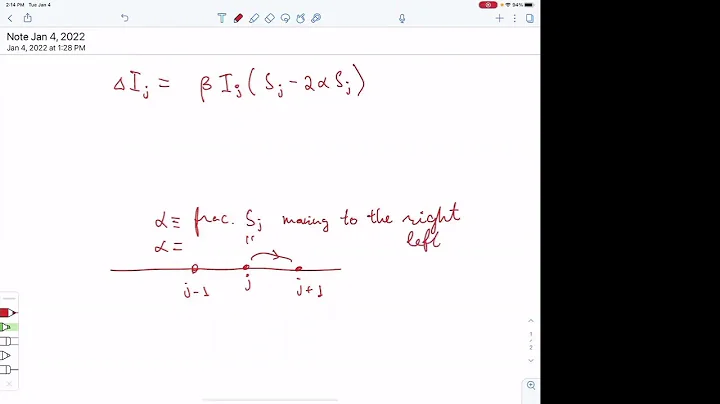 2:14 PM Tue Jan 4
94%
Note Jan 4, 2022
Jan 4, 2022 at 1:28 PM
ΔI_j = β I_j (S_j - 2α S_j)
α ≡ frac. S_j moving to the right
α = " left
j-1 j j+1
1
2